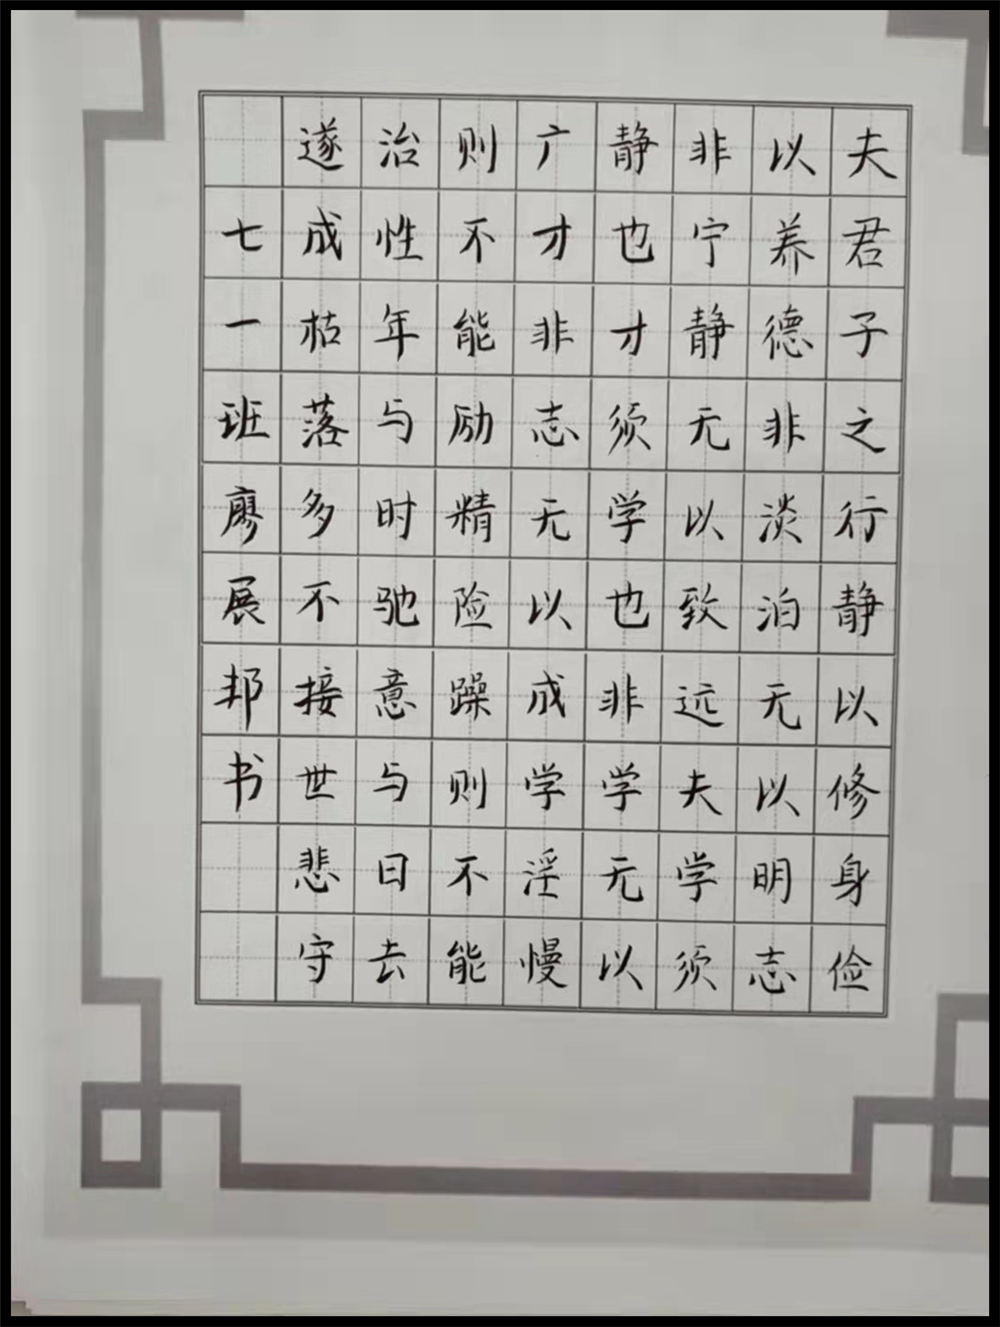 夫君子之行静以修身俭
以养德非淡泊无以明志
非宁静无以致远夫学须
静也才须学也非学无以
广才非志无以成学淫慢
则不能励精险躁则不能
治性年与时驰意与日去
遂成枯落多不接世悲守
七一班廖展邦书